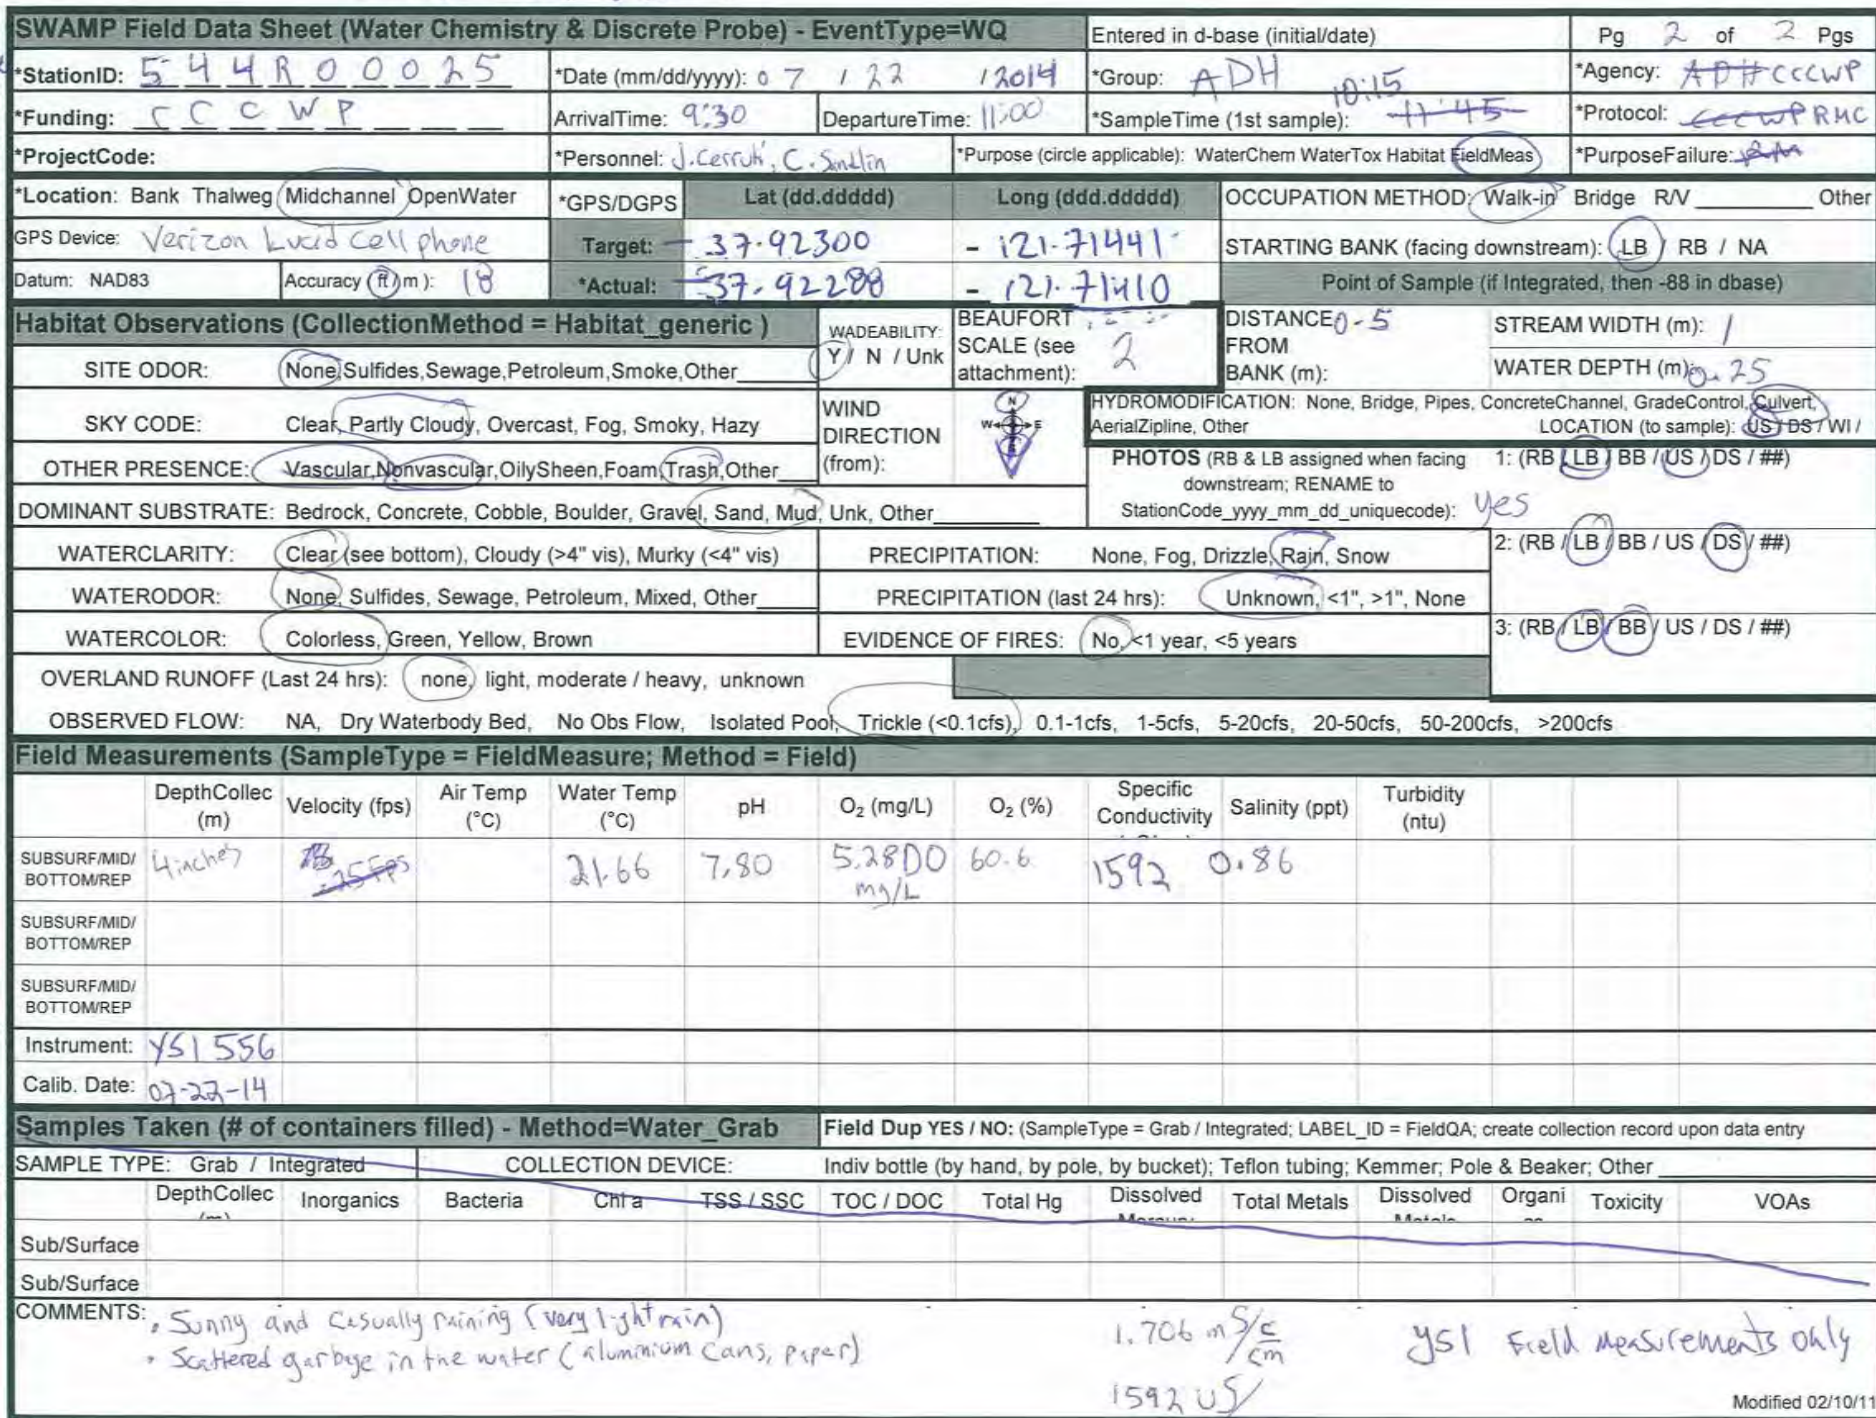 SWAMP Field Data Sheet (Water Chemistry & Discrete Probe) - EventType=WQ Entered in d-base (initial/date) Pg 2 of 2 Pgs
*StationID: 5 4 4 R 0 0 0 2 5 *Date (mm/dd/yyyy): 07 / 22 / 2014 *Group: ADH *Agency: ADH CCCWP
*Funding: C C C W P ArrivalTime: 9:30 DepartureTime: 11:00 *SampleTime (1st sample): 11:45 10:15 *Protocol: CCCWP RMC
*ProjectCode: *Personnel: J. Cerruti, C. Sandlin *Purpose (circle applicable): WaterChem WaterTox Habitat FieldMeas *PurposeFailure:
*Location: Bank Thalweg Midchannel OpenWater *GPS/DGPS Lat (dd.ddddd) Long (ddd.ddddd) OCCUPATION METHOD: Walk-in Bridge R/V ________ Other
GPS Device: Verizon Lucid Cell phone Target: 37.92300 - 121.71441 STARTING BANK (facing downstream): LB / RB / NA
Datum: NAD83 Accuracy (ft / m ): 18 *Actual: 37.92288 - 121.71410 Point of Sample (if Integrated, then -88 in dbase)
Habitat Observations (CollectionMethod = Habitat_generic ) WADEABILITY: Y / N / Unk BEAUFORT SCALE (see attachment): 2 DISTANCE FROM BANK (m): 0-5 STREAM WIDTH (m): 1
SITE ODOR: None,Sulfides,Sewage,Petroleum,Smoke,Other____ WATER DEPTH (m): 0.25
SKY CODE: Clear, Partly Cloudy, Overcast, Fog, Smoky, Hazy WIND DIRECTION (from): N W E S HYDROMODIFICATION: None, Bridge, Pipes, ConcreteChannel, GradeControl, Culvert, AerialZipline, Other LOCATION (to sample): US / DS / WI /
OTHER PRESENCE: Vascular,Nonvascular,OilySheen,Foam,Trash,Other____ PHOTOS (RB & LB assigned when facing downstream; RENAME to StationCode_yyyy_mm_dd_uniquecode): yes 1: (RB / LB / BB / US / DS / ##)
DOMINANT SUBSTRATE: Bedrock, Concrete, Cobble, Boulder, Gravel, Sand, Mud, Unk, Other________
WATERCLARITY: Clear (see bottom), Cloudy (>4" vis), Murky (<4" vis) PRECIPITATION: None, Fog, Drizzle, Rain, Snow 2: (RB / LB / BB / US / DS / ##)
WATERODOR: None, Sulfides, Sewage, Petroleum, Mixed, Other____ PRECIPITATION (last 24 hrs): Unknown, <1", >1", None
WATERCOLOR: Colorless, Green, Yellow, Brown EVIDENCE OF FIRES: No, <1 year, <5 years 3: (RB / LB / BB / US / DS / ##)
OVERLAND RUNOFF (Last 24 hrs): none, light, moderate / heavy, unknown
OBSERVED FLOW: NA, Dry Waterbody Bed, No Obs Flow, Isolated Pool, Trickle (<0.1cfs), 0.1-1cfs, 1-5cfs, 5-20cfs, 20-50cfs, 50-200cfs, >200cfs
Field Measurements (SampleType = FieldMeasure; Method = Field)
DepthCollec (m) Velocity (fps) Air Temp (°C) Water Temp (°C) pH O₂ (mg/L) O₂ (%) Specific Conductivity Salinity (ppt) Turbidity (ntu)
SUBSURF/MID/ BOTTOM/REP 4 inches .25 fps 21.66 7.80 5.28 DO mg/L 60.6 1592 0.86
SUBSURF/MID/ BOTTOM/REP
SUBSURF/MID/ BOTTOM/REP
Instrument: YSI 556
Calib. Date: 07-22-14
Samples Taken (# of containers filled) - Method=Water_Grab Field Dup YES / NO: (SampleType = Grab / Integrated; LABEL_ID = FieldQA; create collection record upon data entry
SAMPLE TYPE: Grab / Integrated COLLECTION DEVICE: Indiv bottle (by hand, by pole, by bucket); Teflon tubing; Kemmer; Pole & Beaker; Other ________
DepthCollec Inorganics Bacteria Chl a TSS / SSC TOC / DOC Total Hg Dissolved Mercury Total Metals Dissolved Metals Organi Toxicity VOAs
Sub/Surface
Sub/Surface
COMMENTS: • Sunny and casually raining (very light rain) 1.706 mS/c cm YSI Field measurements only
• Scattered garbage in the water (aluminium cans, paper)
1592 uS/
Modified 02/10/11